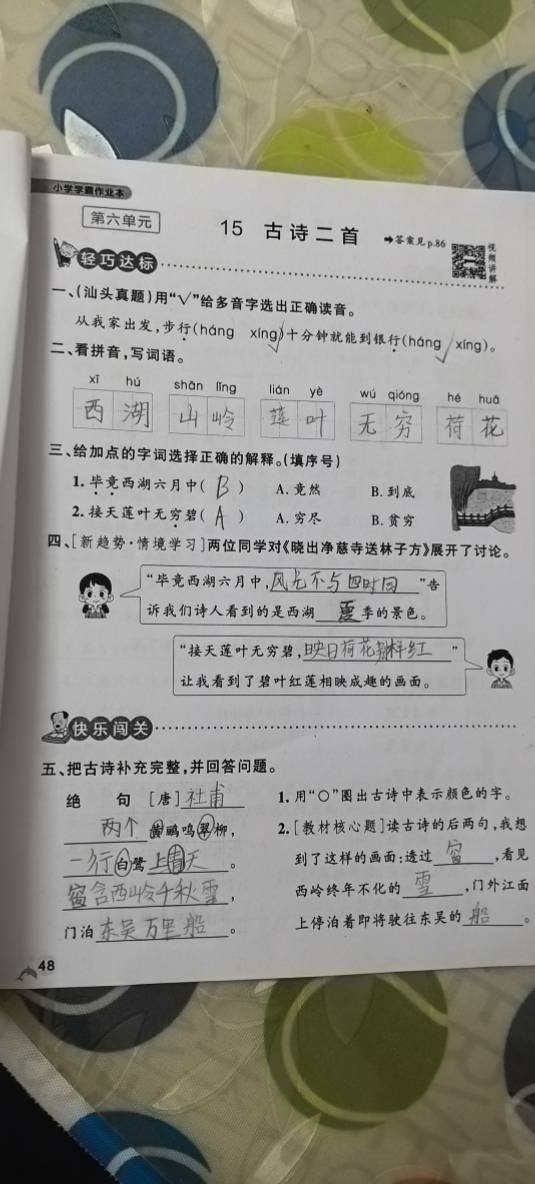 小学学霸作业本
第六单元
15 古诗二首
➡答案见p.86
视频讲解
轻巧达标
一、(汕头真题)用“√”给多音字选出正确读音。
从我家出发,步行(háng xíng√)十分钟就能到银行(háng√ xíng)。
二、看拼音,写词语。
xī hú shān lǐng lián yè wú qióng hé huā
西湖 山岭 莲叶 无穷 荷花
三、给加点的字词选择正确的解释。(填序号)
1. 毕竟西湖六月中( B ) A. 竟然 B. 到底
2. 接天莲叶无穷碧( A ) A. 穷尽 B. 贫穷
四、[新趋势·情境学习]两位同学对《晓出净慈寺送林子方》展开了讨论。
“毕竟西湖六月中,风光不与四时同”告
诉我们诗人看到的是西湖夏季的景色。
“接天莲叶无穷碧,映日荷花别样红”
让我看到了碧叶红莲相映成趣的画面。
快乐闯关
五、把古诗补充完整,并回答问题。
绝 句 [唐]杜甫
两个黄鹂鸣翠柳,
一行白鹭上青天。
窗含西岭千秋雪,
门泊东吴万里船。
1. 用“○”圈出古诗中表示颜色的字。
2. [教材核心题]读古诗的后两句,我想
到了这样的画面:透过窗,看见
西岭终年不化的雪,门外江面
上停泊着即将驶往东吴的船。
48